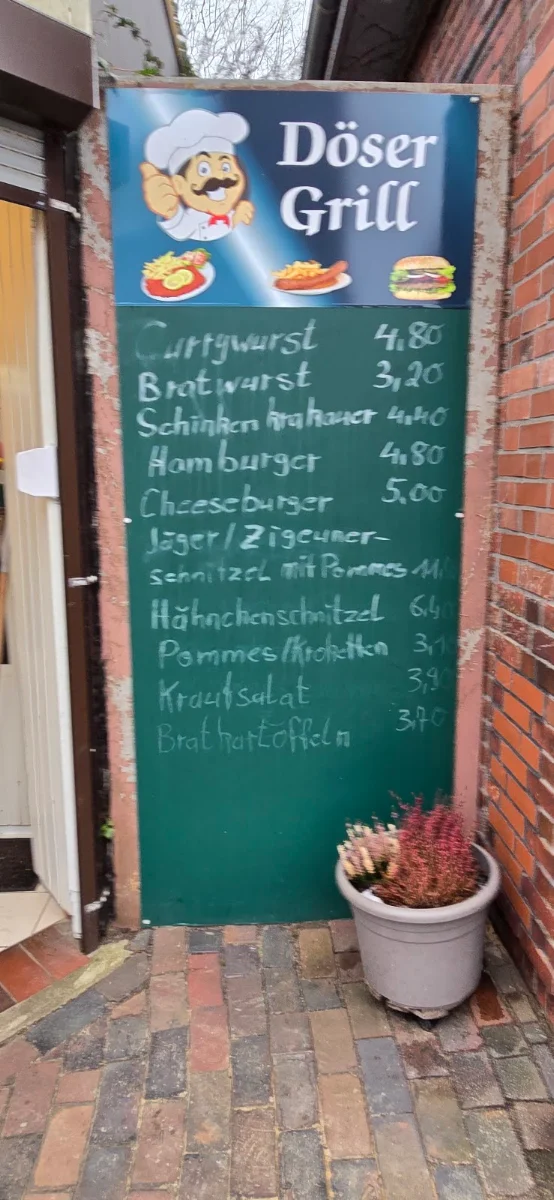 Döser
Grill
Currywurst 4,80
Bratwurst 3,20
Schinkenkrakauer 4,40
Hamburger 4.80
Cheeseburger 5,00
Jäger/Zigeuner-
schnitzel mit Pommes
Hähnchenschnitzel
Pommes/Kroketten
Krautsalat 3,90
Bratkartoffeln 3,70